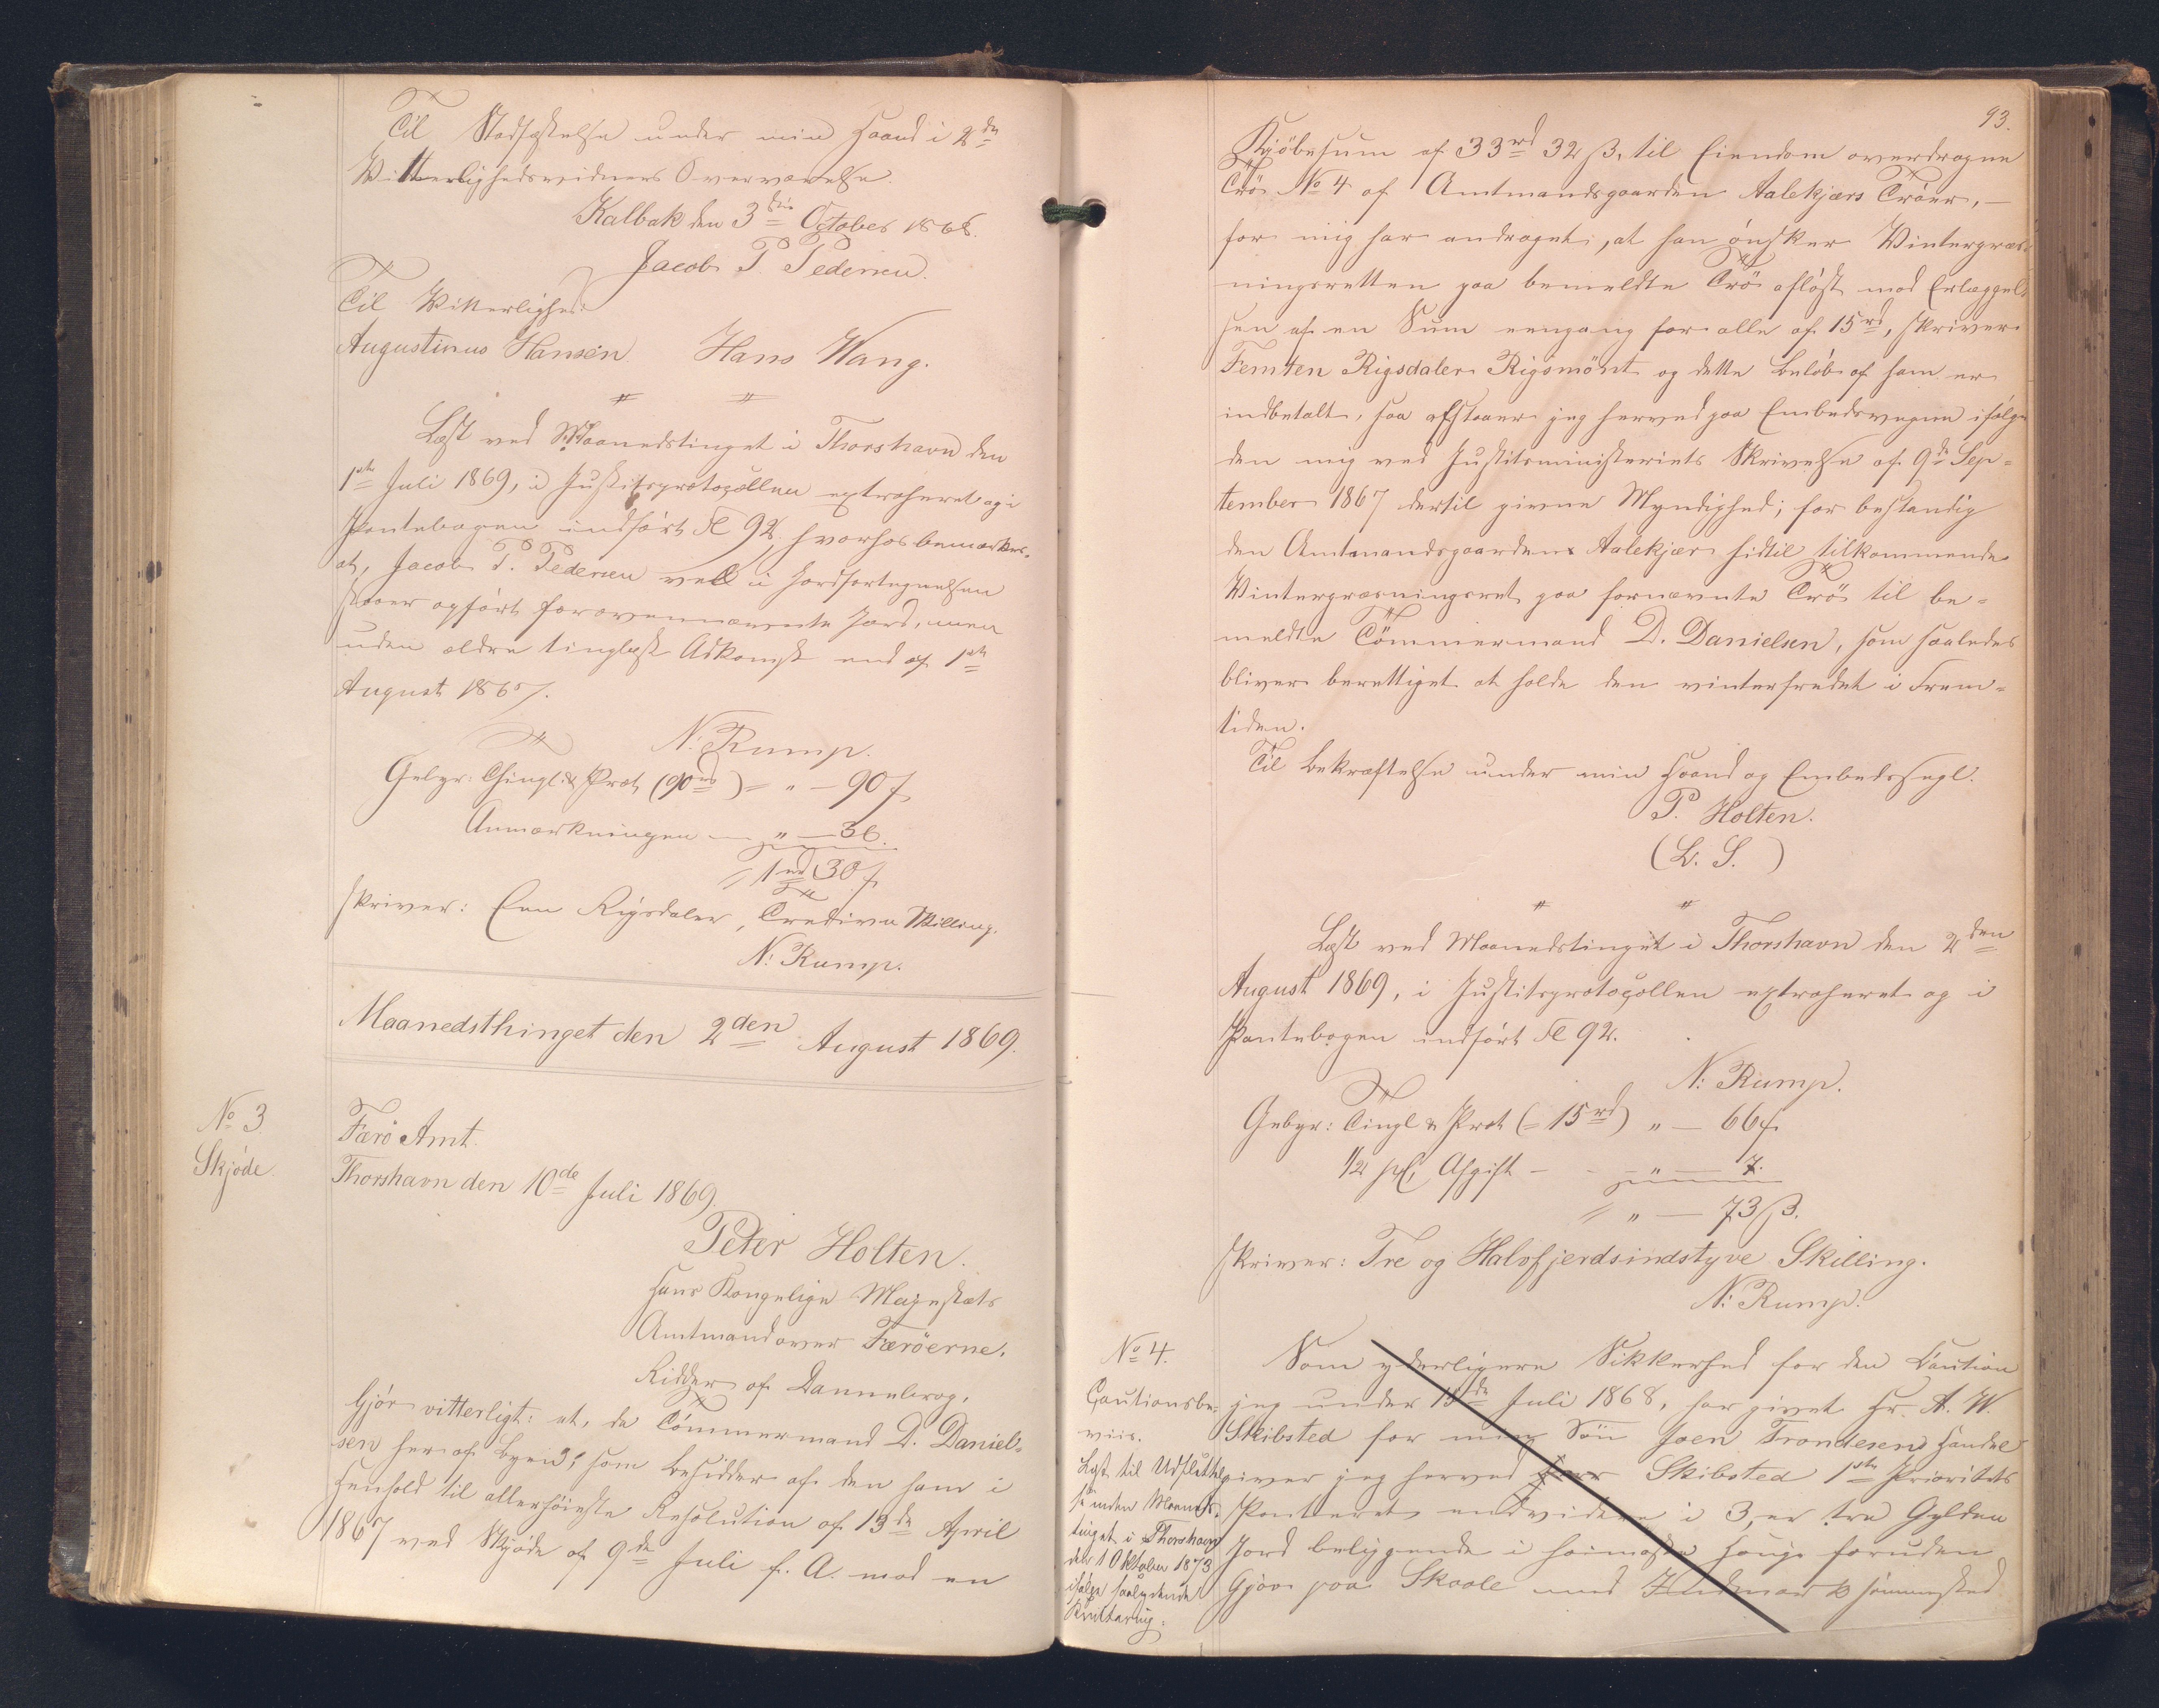 Til Stadfæstelse under min Haand i 2de
Vitterlighedsvidners Overværelse.
Kalbak den 3die October 1868.
Jacob P. Pedersen.
Til Vitterlighed:
Augustinus Hansen. Hans Wang.
Læst ved Maanedstinget i Thorshavn den
1ste Juli 1869, i Justitsprotocollen extraheret og i
Pantebogen indført Fol 92, hvorhos bemærkes,
at, Jacob P. Pedersen vel i Jordfortegnelsen
staaer opført for ovennævnte Jord, men
uden ældre tinglæst Adkomst end af 1ste
August 1867.
N: Rump.
Gebyr: Thingl. & Prot. (90rd) = " — 90 f
Anmærkningen — " — 36.
= 1rd 30 f.
skriver: Een Rigsdaler, Tredive Skilling.
N: Rump.
Maanedsthinget den 2den August 1869.
No 3.
Skjøde.
Færø Amt.
Thorshavn den 10de Juli 1869.
Peter Holten.
Hans Kongelige Majestæts
Amtmand over Færöerne,
Ridder af Dannebrog,
Gjør vitterligt: at, da Tömmermand D. Daniel-
sen her af Byen, som Besidder af den ham i
Henhold til allerhöieste Resolution af 13de April
1867 ved Skjøde af 9de Juli s. A. mod en
93.
Kjöbesum af 33rd 32 ß, til Eiendom overdragne
Trö No 4 af Amtmandsgaarden Aalekjærs Tröer, —
for mig har andraget, at han önsker Vintergræs-
ningsretten paa bemeldte Trö aflöst mod Erlæggel-
sen af en Sum eengang for alle af 15rd, skriver
Femten Rigsdaler Rigsmönt og dette Belöb af ham er
indbetalt, saa afstaaer jeg herved paa Embedsvegne ifölge
den mig ved Justitsministeriets Skrivelse af 9de Sep-
tember 1867 dertil givne Myndighed; for bestandig
den Amtmandsgaarden Aalekjær hidtil tilkommende
Vintergræsningsret paa fornævnte Trö til be-
meldte Tömmermand D. Danielsen, som saaledes
bliver berettiget at holde den vinterfredet i Frem-
tiden.
Til Bekræftelse under min Haand og Embedssegl.
P. Holten.
(L. S.)
Læst ved Maanedstinget i Thorshavn den 2den
August 1869, i Justitsprotocollen extraheret og i
Pantebogen indført Fol 92.
N: Rump.
Gebyr: Tingl & Prot (= 15rd) " — 66 f.
1/2 pCt Afgift — " — 7.
= " — 73 ß.
skriver: Tre og Halvfjerdsindstyve Skilling.
N: Rump.
No 4.
Cautionsbe-
viis.
Læst til Udslettel-
se inden Maaneds-
tinget i Thorshavn
den 1 Oktober 1873
ifölge saalydende
Kvittering:
Som yderligere Sikkerhed for den Caution
jeg under 15de Juli 1868, har givet Hr. A. W.
Skibsted for min Sön Joen Trondesens Handel
giver jeg herved Herr Skibsted 1ste Prioritets
Panteret endvidere i 3, er tre Gylden
Jord beliggende i Heimaste Houge foruden
Gjöv paa Skaale med